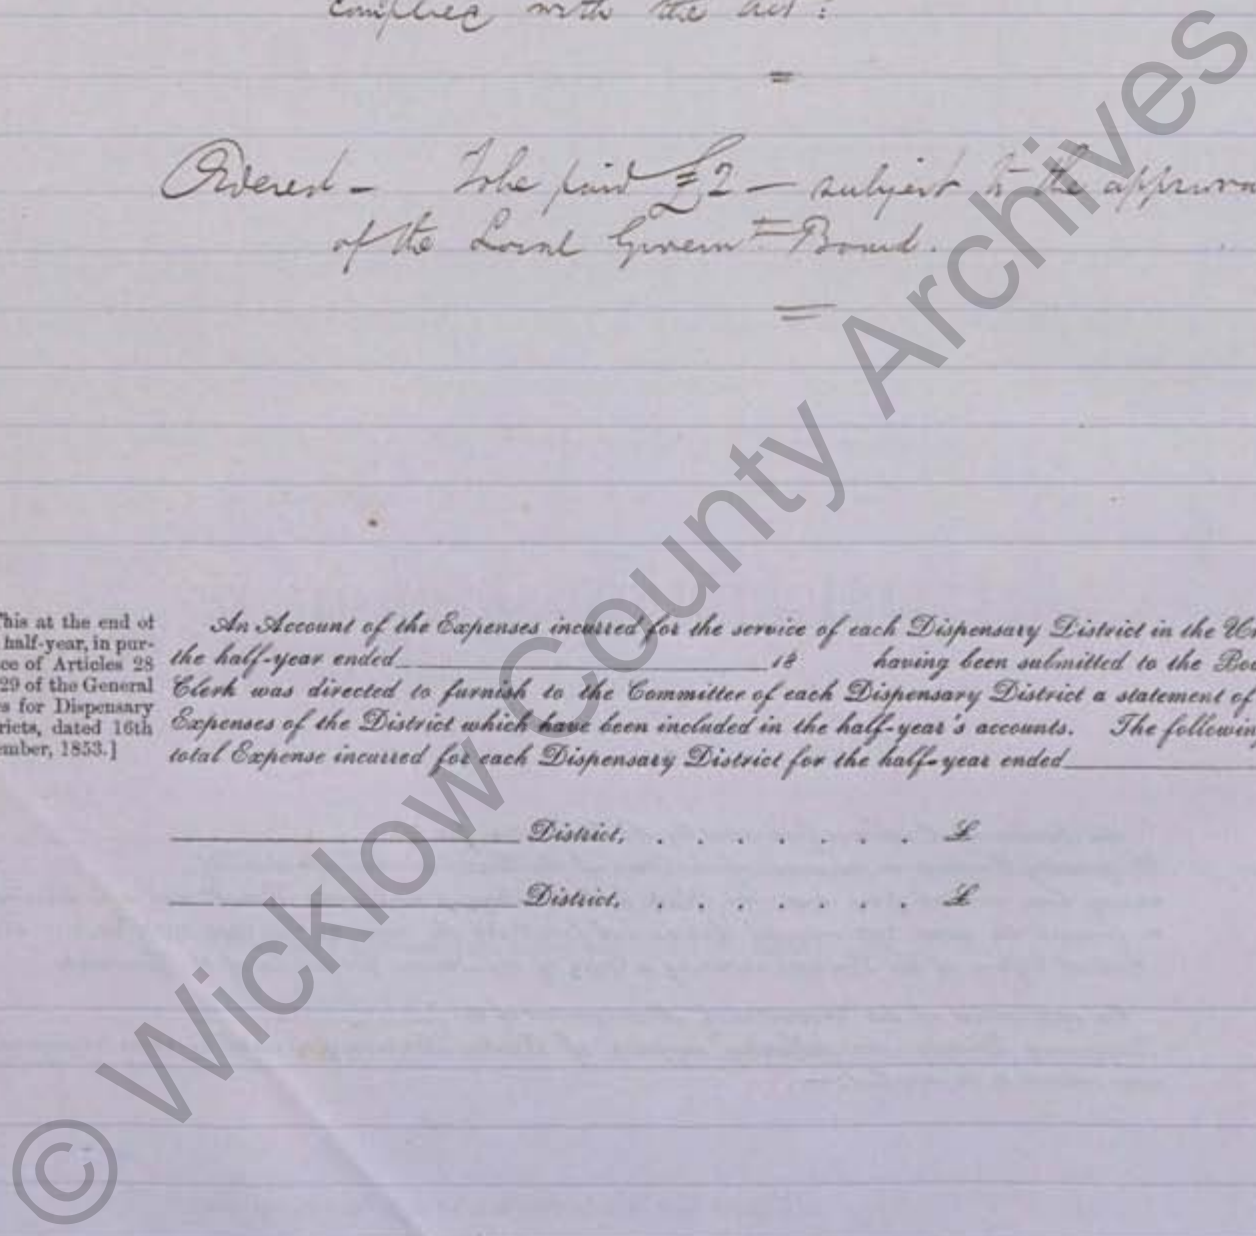 complied with the act:
Ordered - To be paid £2 - subject to the approva
of the Local Governt Board.
his at the end of
half-year, in pur-
ce of Articles 28
29 of the General
s for Dispensary
ricts, dated 16th
ember, 1853.]
An Account of the Expenses incurred for the service of each Dispensary District in the U
the half-year ended 18 having been submitted to the Boa
Clerk was directed to furnish to the Committee of each Dispensary District a statement of
Expenses of the District which have been included in the half-year's accounts. The following
total Expense incurred for each Dispensary District for the half-year ended
District, . . . . . . . £
District, . . . . . . . £
© Wicklow County Archives